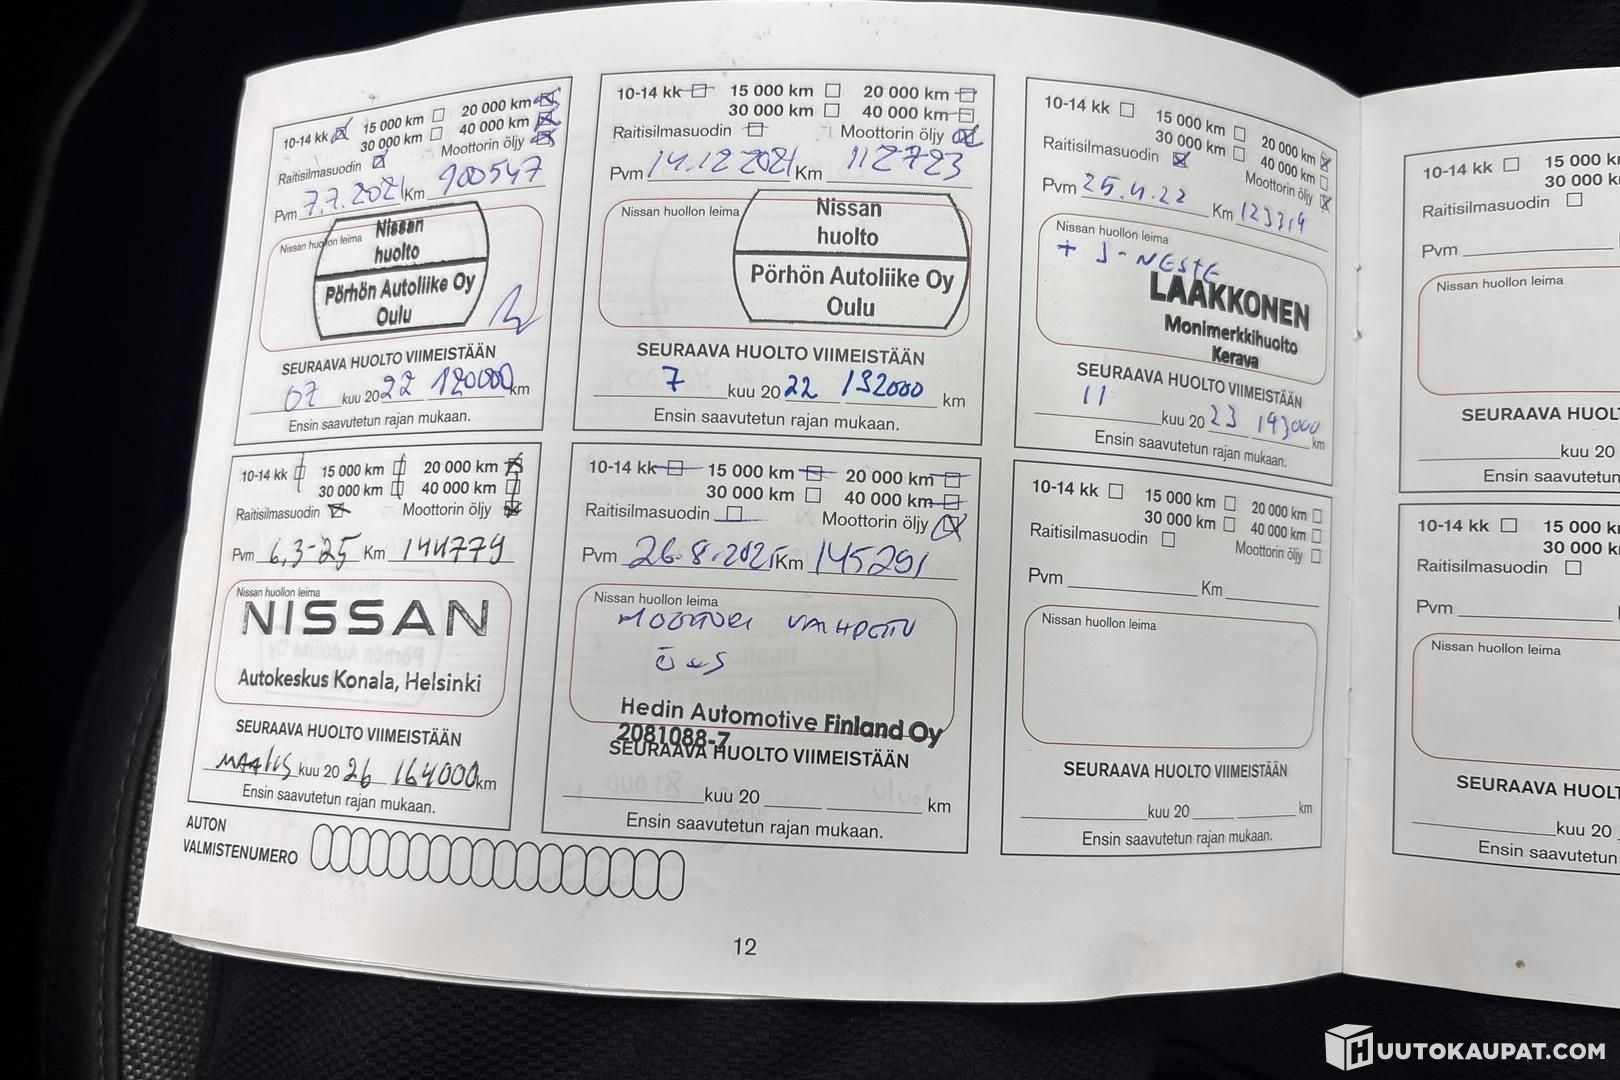 10-14 kk 15 000 km 20 000 km
30 000 km 40 000 km
Raitisilmasuodin Moottorin öljy
Pvm 7.7.2021 Km 100547
Nissan huollon leima
Nissan
huolto
Pörhön Autoliike Oy
Oulu
SEURAAVA HUOLTO VIIMEISTÄÄN
07 kuu 2022 120000 km
Ensin saavutetun rajan mukaan.
10-14 kk 15 000 km 20 000 km
30 000 km 40 000 km
Raitisilmasuodin Moottorin öljy
Pvm 14.12.2021 Km 112723
Nissan huollon leima
Nissan
huolto
Pörhön Autoliike Oy
Oulu
SEURAAVA HUOLTO VIIMEISTÄÄN
7 kuu 2022 132000 km
Ensin saavutetun rajan mukaan.
10-14 kk 15 000 km 20 000 km
30 000 km 40 000 km
Raitisilmasuodin Moottorin öljy
Pvm 25.4.22 Km 123319
Nissan huollon leima
+ J-NESTE
LAAKKONEN
Monimerkkihuolto
Kerava
SEURAAVA HUOLTO VIIMEISTÄÄN
11 kuu 2023 143000 km
Ensin saavutetun rajan mukaan.
10-14 kk 15 000 km 20 000 km
30 000 km 40 000 km
Raitisilmasuodin Moottorin öljy
Pvm 6,3-25 Km 144779
Nissan huollon leima
NISSAN
Autokeskus Konala, Helsinki
SEURAAVA HUOLTO VIIMEISTÄÄN
MAALIS kuu 2026 164000 km
Ensin saavutetun rajan mukaan.
10-14 kk 15 000 km 20 000 km
30 000 km 40 000 km
Raitisilmasuodin Moottorin öljy
Pvm 26.8.2025 Km 145291
Nissan huollon leima
MOOTTORI VAIHDETTU
Hedin Automotive Finland Oy
2081088-7
SEURAAVA HUOLTO VIIMEISTÄÄN
kuu 20 km
Ensin saavutetun rajan mukaan.
10-14 kk 15 000 km 20 000 km
30 000 km 40 000 km
Raitisilmasuodin Moottorin öljy
Pvm Km
Nissan huollon leima
SEURAAVA HUOLTO VIIMEISTÄÄN
kuu 20 km
Ensin saavutetun rajan mukaan.
AUTON
VALMISTENUMERO
12
10-14 kk 15 000 k
30 000 k
Raitisilmasuodin
Pvm
Nissan huollon leima
SEURAAVA HUOL
kuu 20
Ensin saavutetun
10-14 kk 15 000 k
30 000 k
Raitisilmasuodin
Pvm
Nissan huollon leima
SEURAAVA HUOL
kuu 20
Ensin saavutetun
HUUTOKAUPAT.COM